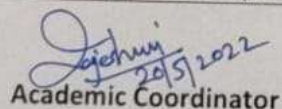 20/5/2022
Academic Coordinator